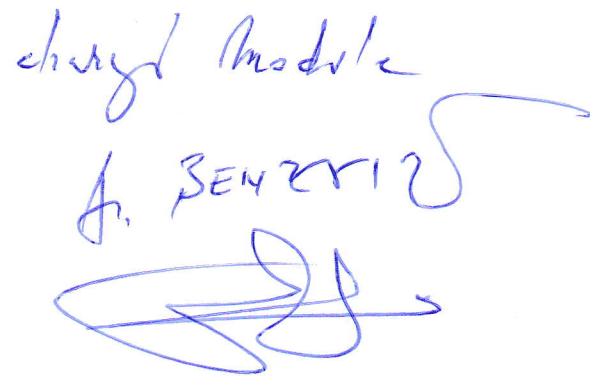 chargé Module
A. BENZVIZ